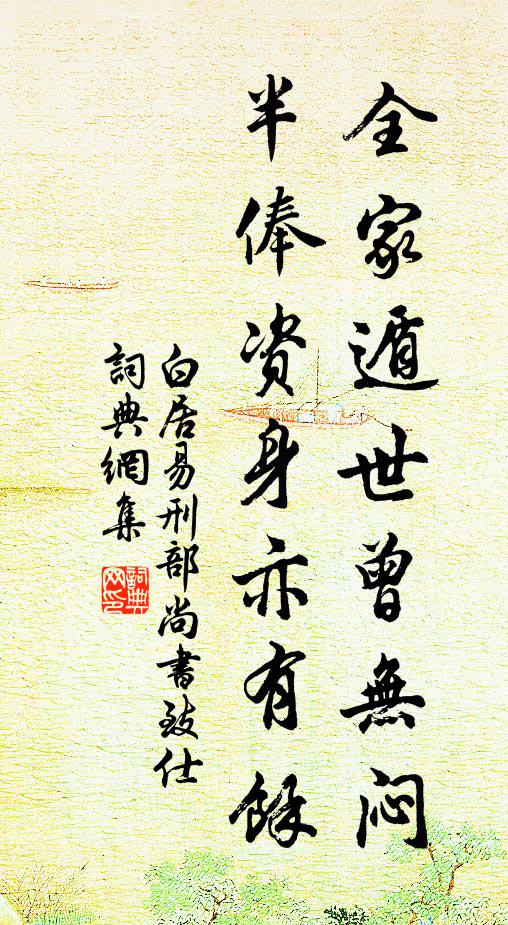 全家遁世曾無悶
半俸资身亦有餘
白居易刑部尚書致仕
詞典網集
詞典
网印